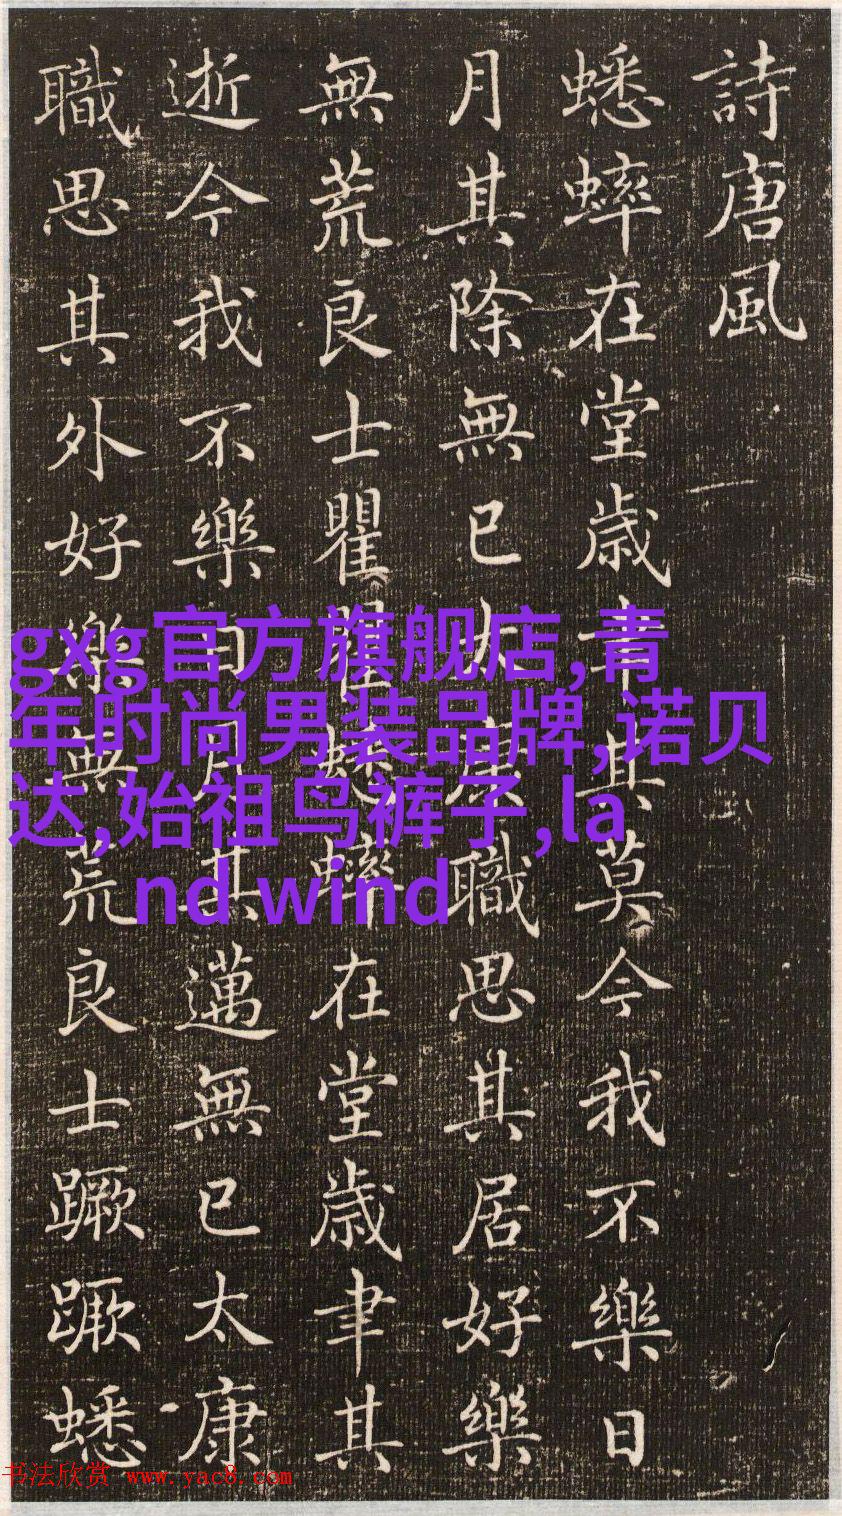 詩唐風
蟋蟀在堂歳聿其莫今我不樂日
月其除無已太康職思其居好樂
無荒良士瞿瞿蟋蟀在堂歳聿其
逝今我不樂日月其邁無已太康
職思其外好樂無荒良士蹶蹶蟋
gxg官方旗舰店,青
年时尚男装品牌,诺贝
达,始祖鸟裤子,la
nd wind
书法欣赏 www.yac8.com